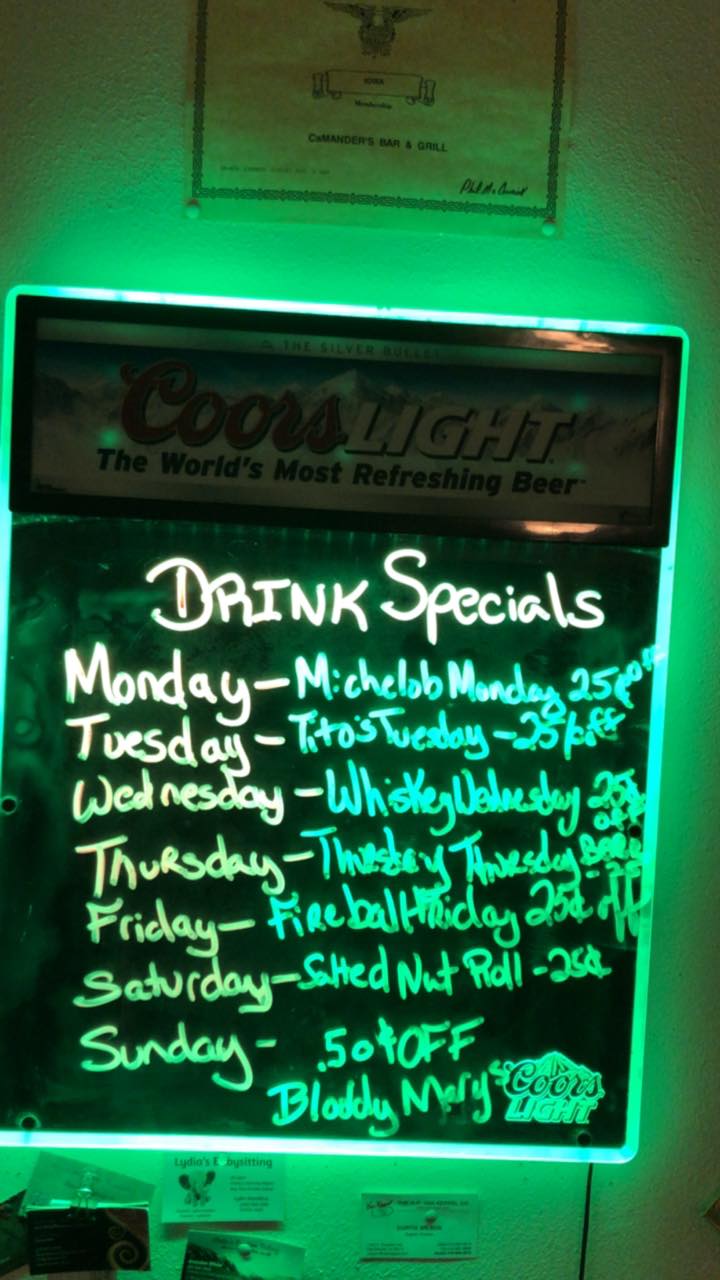 IOWA
Membership
CxMANDER'S BAR & GRILL
THE SILVER BULLET
Coors LIGHT
The World's Most Refreshing Beer
DRINK Specials
Monday - Michelob Monday 25¢ off
Tuesday - Tito's Tuesday - 25¢ off
Wednesday - Whiskey Wednesday 25¢
off
Thursday - Thirstday Thursday
Friday - Fireball Friday 25¢ off
Saturday - Salted Nut Roll - 25¢
Sunday - .50¢ OFF
Bloddy Mary's
Coors
LIGHT
Lydia's